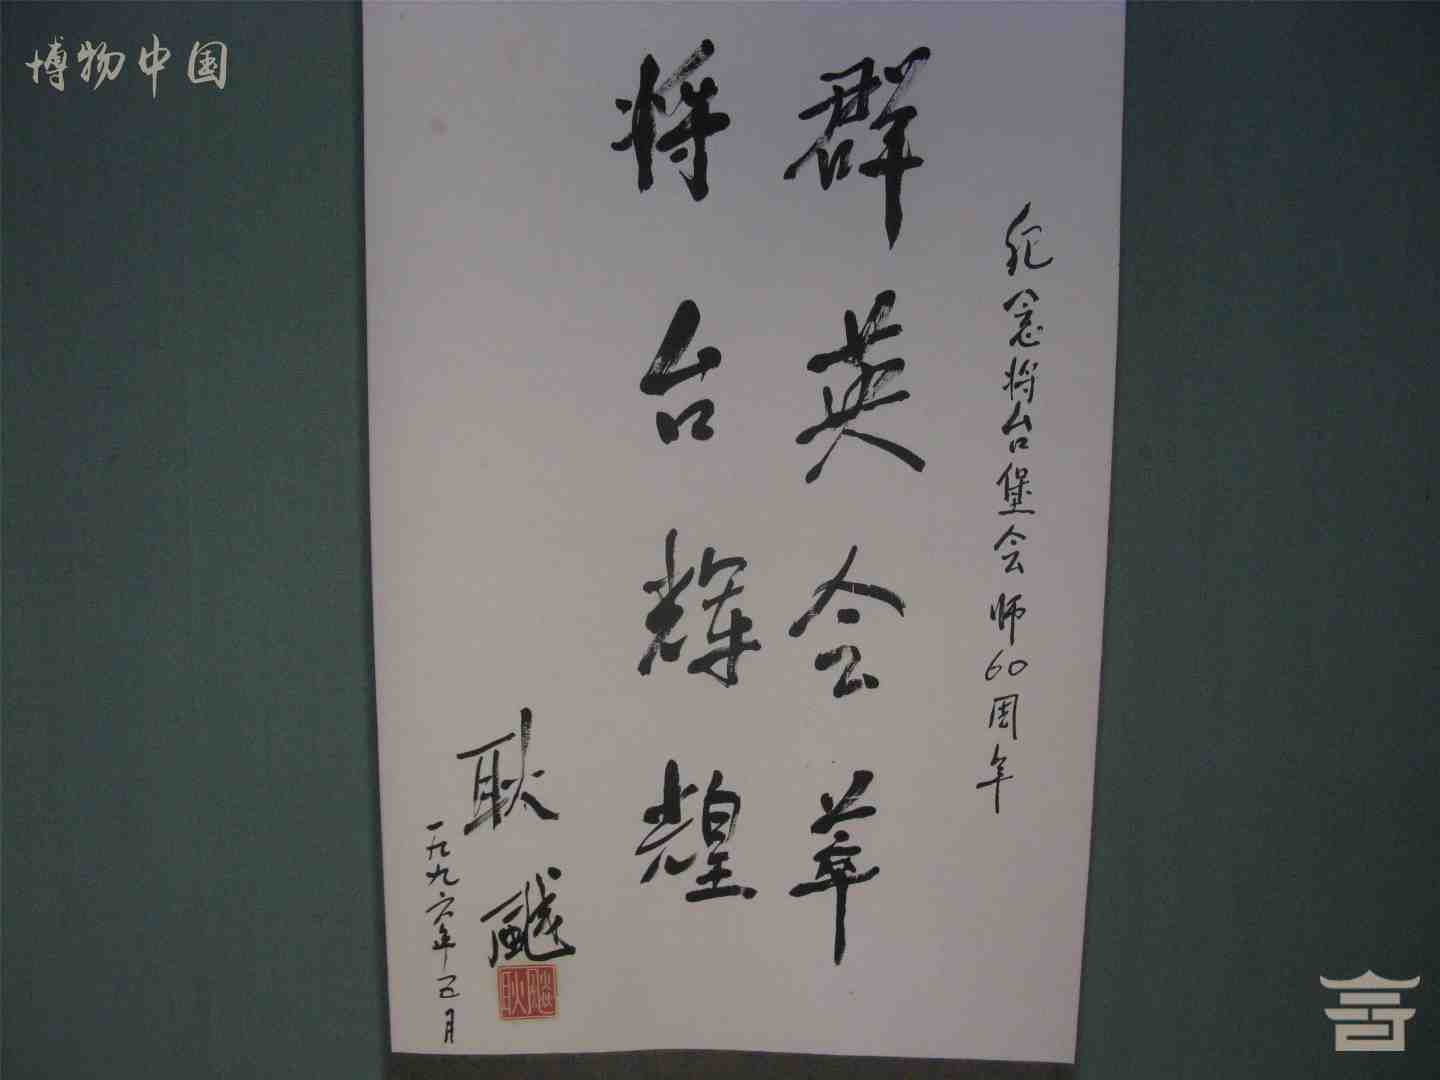 博物中国
纪念将台堡会师60周年
群英会萃
将台辉煌
耿飚
一九九六年五月